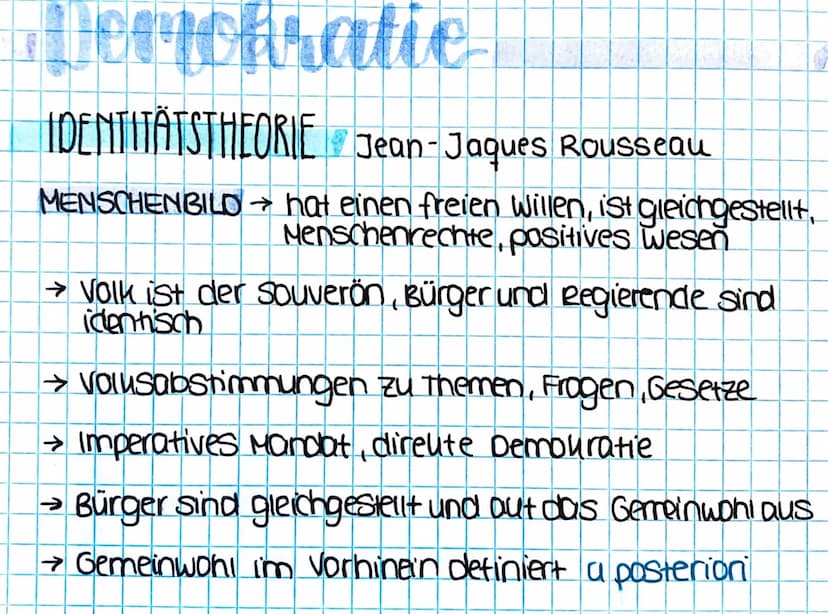 Demokratie
IDENTITÄTSTHEORIE Jean-Jaques Rousseau
MENSCHENBILD → hat einen freien Willen, ist gleichgestellt,
Menschenrechte, positives Wesen
→ Volk ist der Souverön, Bürger und Regierende sind
identisch
→ Volksabstimmungen zu Themen, Fragen, Gesetze
→ Imperatives Mandat, direkte Demokratie
→ Bürger sind gleichgestellt und auf das Gemeinwohl aus
→ Gemeinwohl im Vorhinein definiert a posteriori